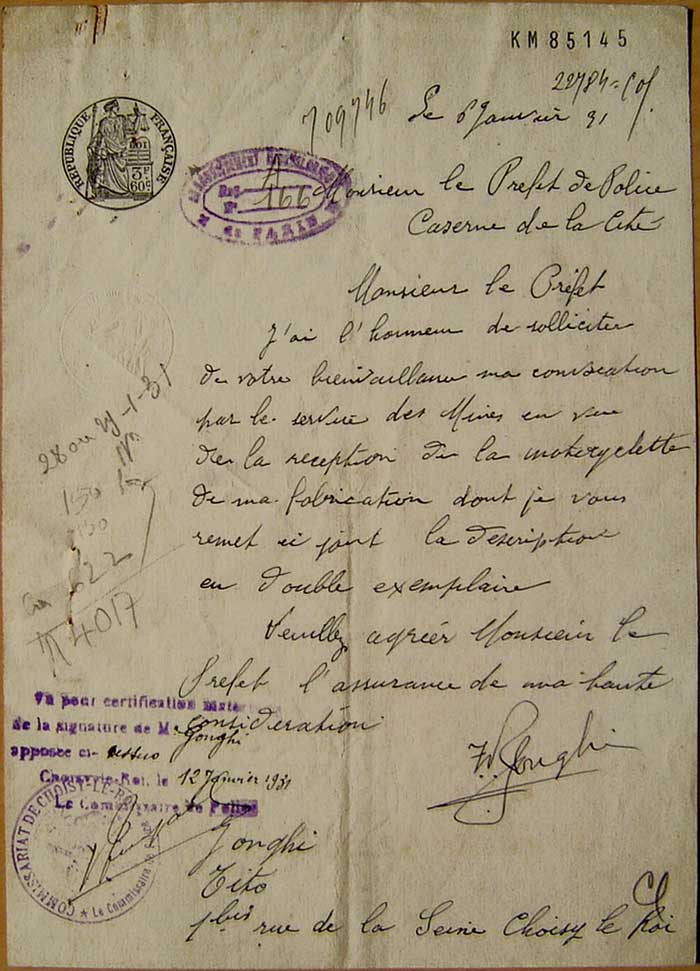 KM 85145
22784
709746
Le 6 Janvier 31
REPUBLIQUE FRANÇAISE
LOI
3F
60c
166
de PARIS
Monsieur le Prefet de Police
Caserne de la Cité
Monsieur le Préfet
J'ai l'honneur de solliciter
de votre bienvaillance ma convocation
par le service des Mines en vue
de la reception de la motocyclette
de ma fabrication dont je vous
remet ci joint la description
en double exemplaire
Veuillez agréer Monsieur le
Prefet l'assurance de ma haute
consideration
28 ou 29-1-31
150
622
4017
Vu pour certification maté
de la signature de M. Gonghi
apposée ci-dessus
Choisy-le-Roi, le 12 Janvier 1931
Le Commissaire de Police
COMMISSARIAT DE CHOISY-LE-RO
Le Commissaire
Gonghi
Gonghi
Tito
1bis rue de la Seine Choisy le Roi